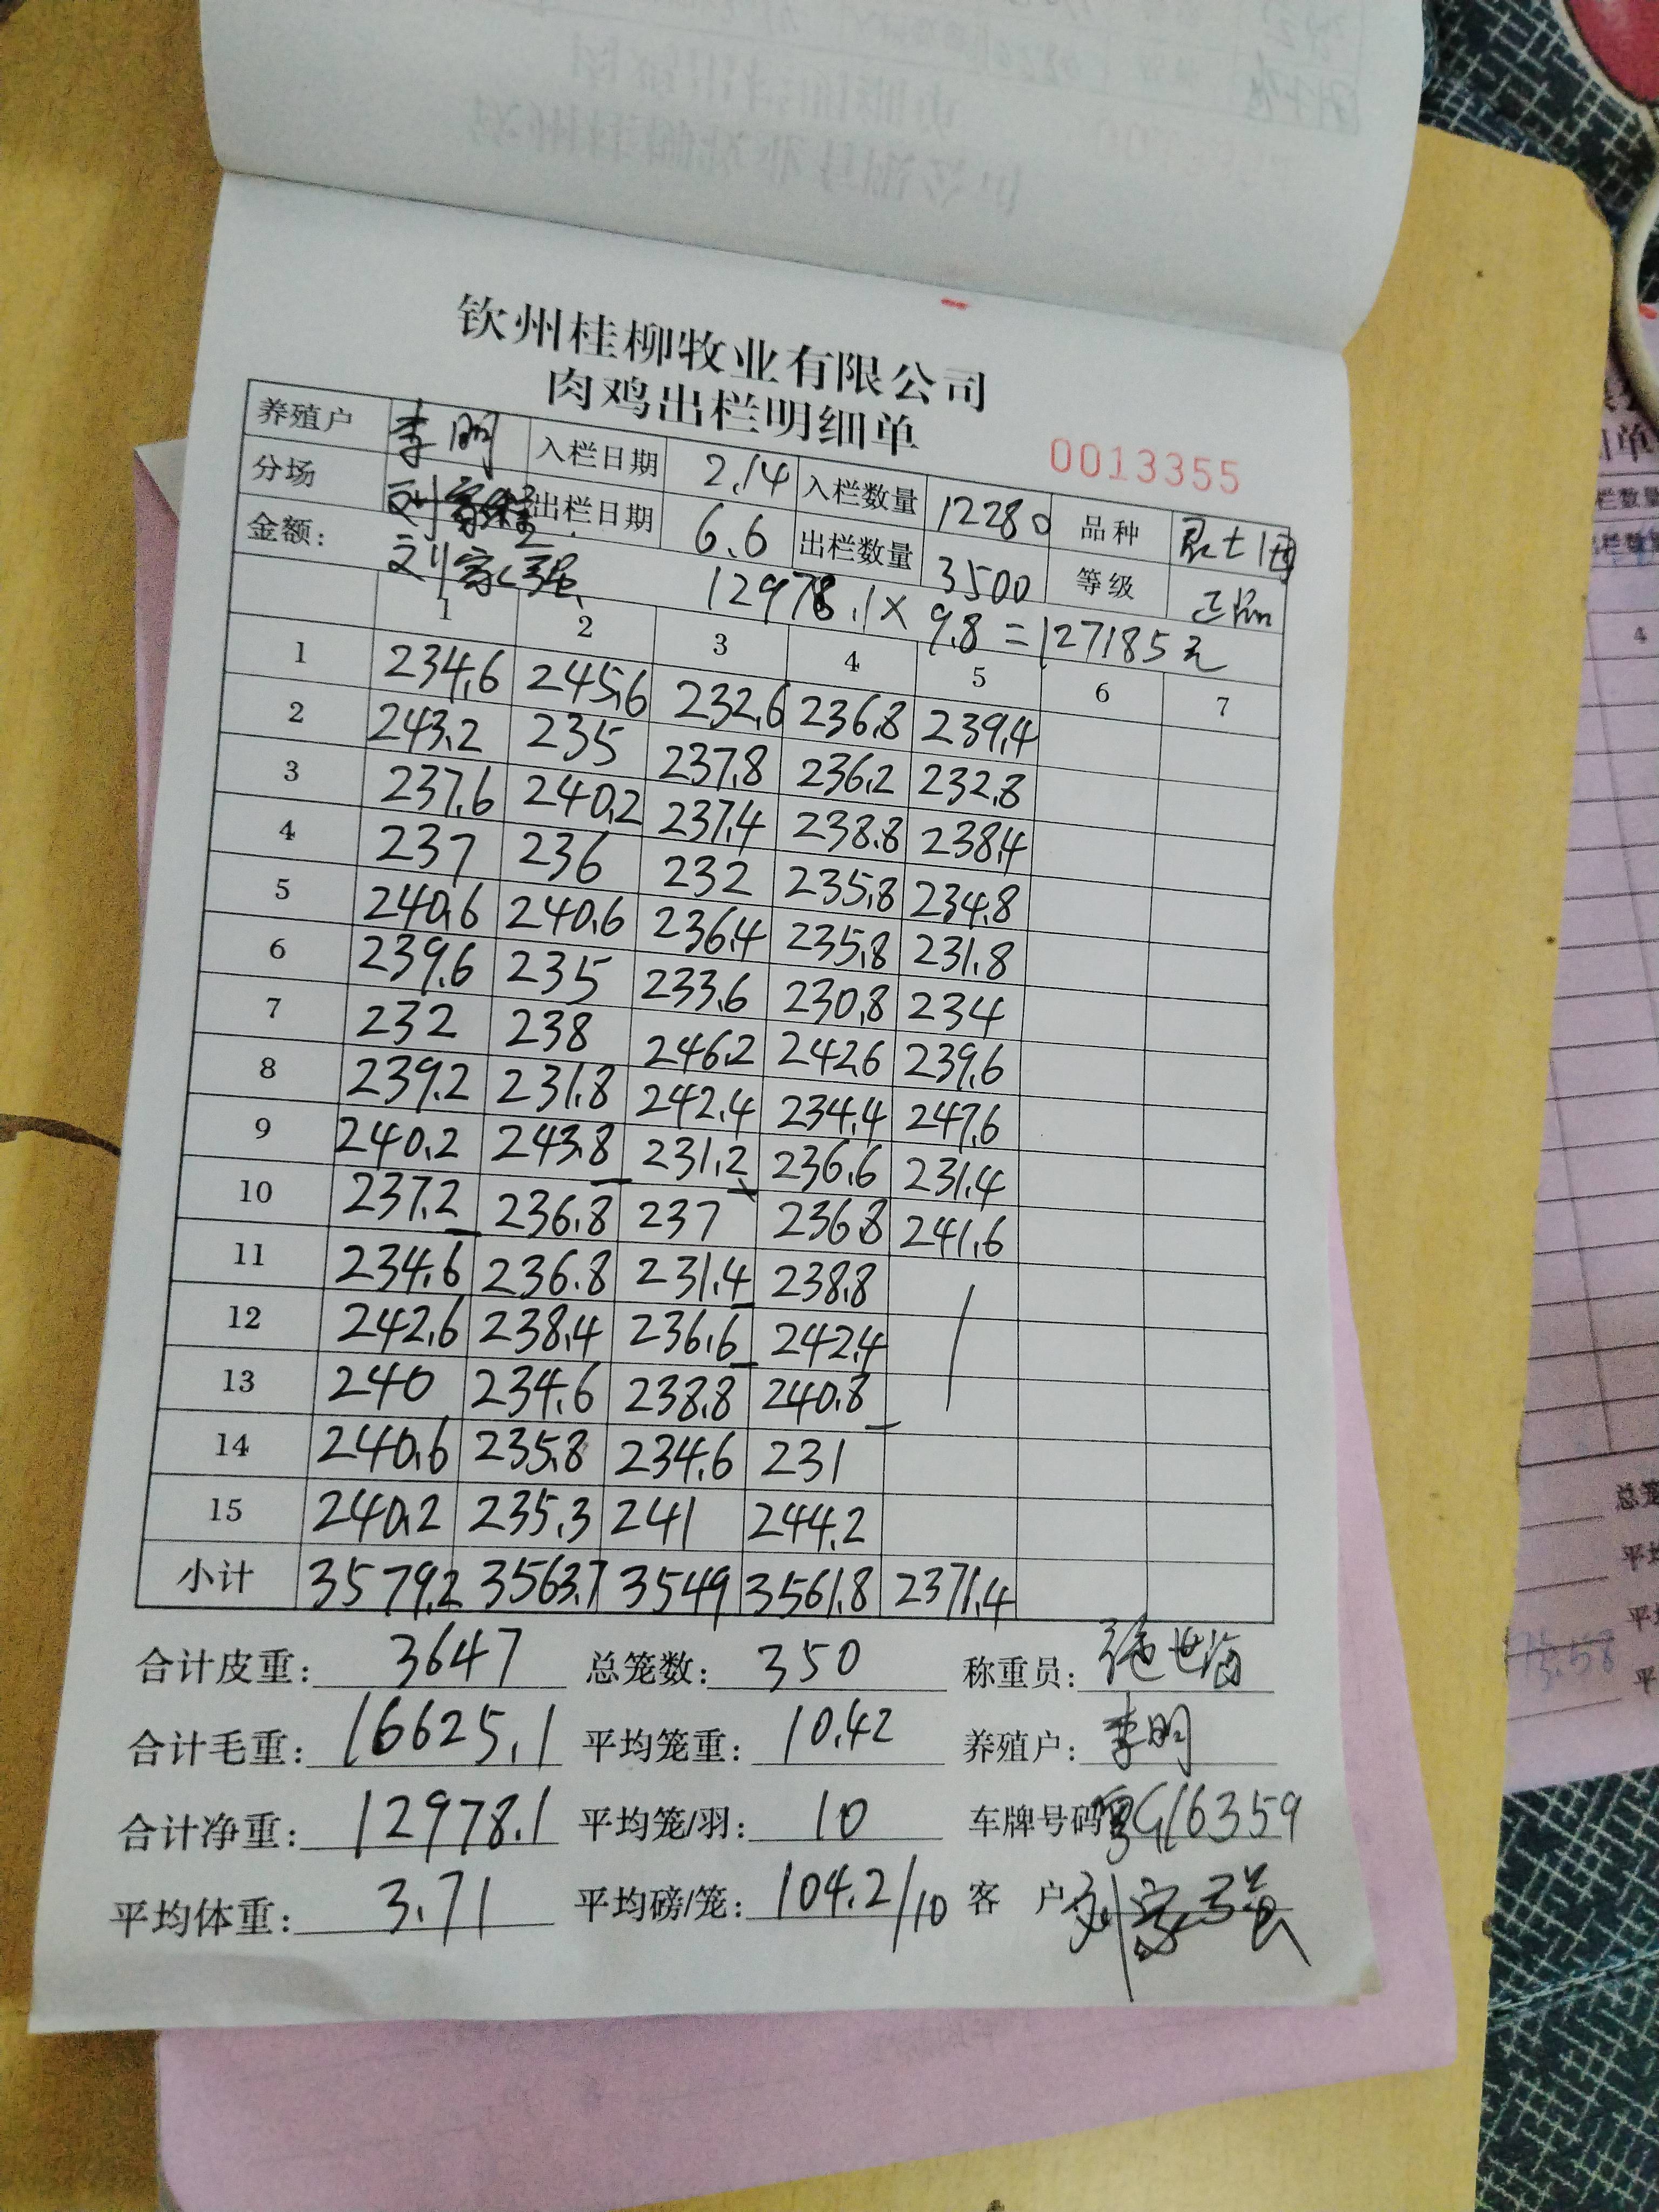 钦州桂柳牧业有限公司
肉鸡出栏明细单
0013355
养殖户 李明 入栏日期 2.14 入栏数量 12280 品种
分场 出栏日期 6.6 出栏数量 3500 等级 正
金额: 刘家强 12978.1×9.8=127185元
1 2 3 4 5 6 7
1 234.6 245.6 232.6 236.8 239.4
2 243.2 235 237.8 236.2 232.8
3 237.6 240.2 237.4 238.8 238.4
4 237 236 232 235.8 234.8
5 240.6 240.6 236.4 235.8 231.8
6 239.6 235 233.6 230.8 234
7 232 238 246.2 242.6 239.6
8 239.2 231.8 242.4 234.4 247.6
9 240.2 243.8 231.2 236.6 231.4
10 237.2 236.8 237 236.8 241.6
11 234.6 236.8 231.4 238.8
12 242.6 238.4 236.6 242.4
13 240 234.6 238.8 240.8
14 240.6 235.8 234.6 231
15 240.2 235.3 241 244.2
小计 3579.2 3563.7 3549 3561.8 2371.4
合计皮重: 3647 总笼数: 350 称重员:
合计毛重: 16625.1 平均笼重: 10.42 养殖户: 李明
合计净重: 12978.1 平均笼/羽: 10 车牌号码 粤G16359
平均体重: 3.71 平均磅/笼: 104.2/10 客 户 刘家强